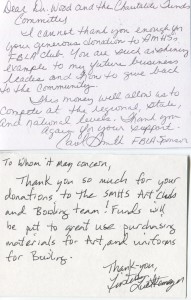 Dear Dr. Wood and the Charitable Funds
Committee,
I cannot thank you enough for
your generous donation to SMHS's
FBLA Club. You are such a
example to my future business
leaders and how to give back
to the community.
This money will allow us to
compete at the regional, state,
and national levels. Thank you
again for your support.
Smith FBLA Sponsor
To whom it may concern,
Thank you so much for your
donations to the SMHS Art Clubs
and Bowling team! Funds will
be put to great use purchasing
materials for Art, and uniforms
for Bowling.
Thank-you,